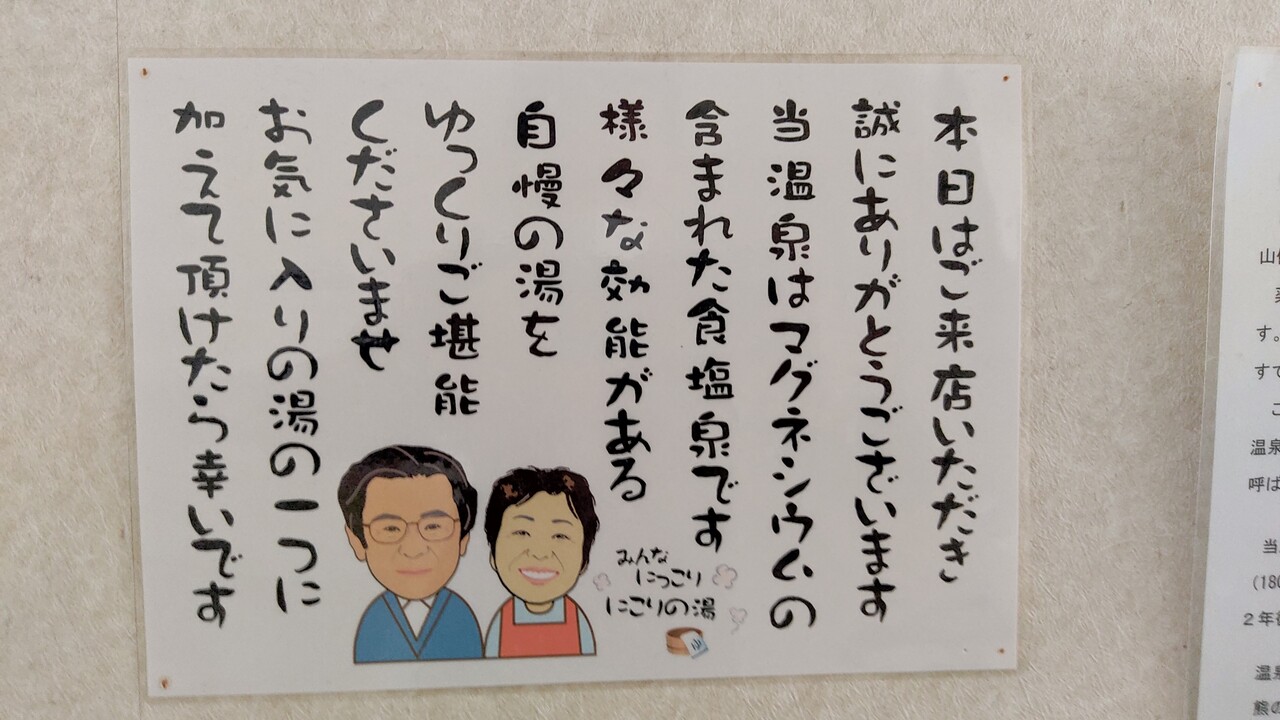 本日はご来店いただき
誠にありがとうございます
当温泉はマグネシウムの
含まれた食塩泉です
様々な効能がある
自慢の湯を
ゆっくりご堪能
くださいませ
お気に入りの湯の一つに
加えて頂けたら幸いです
みんな
にっこり
にごりの湯
す。
すで
こ
温泉
呼ば
当
(180
2年後
温泉
熊の